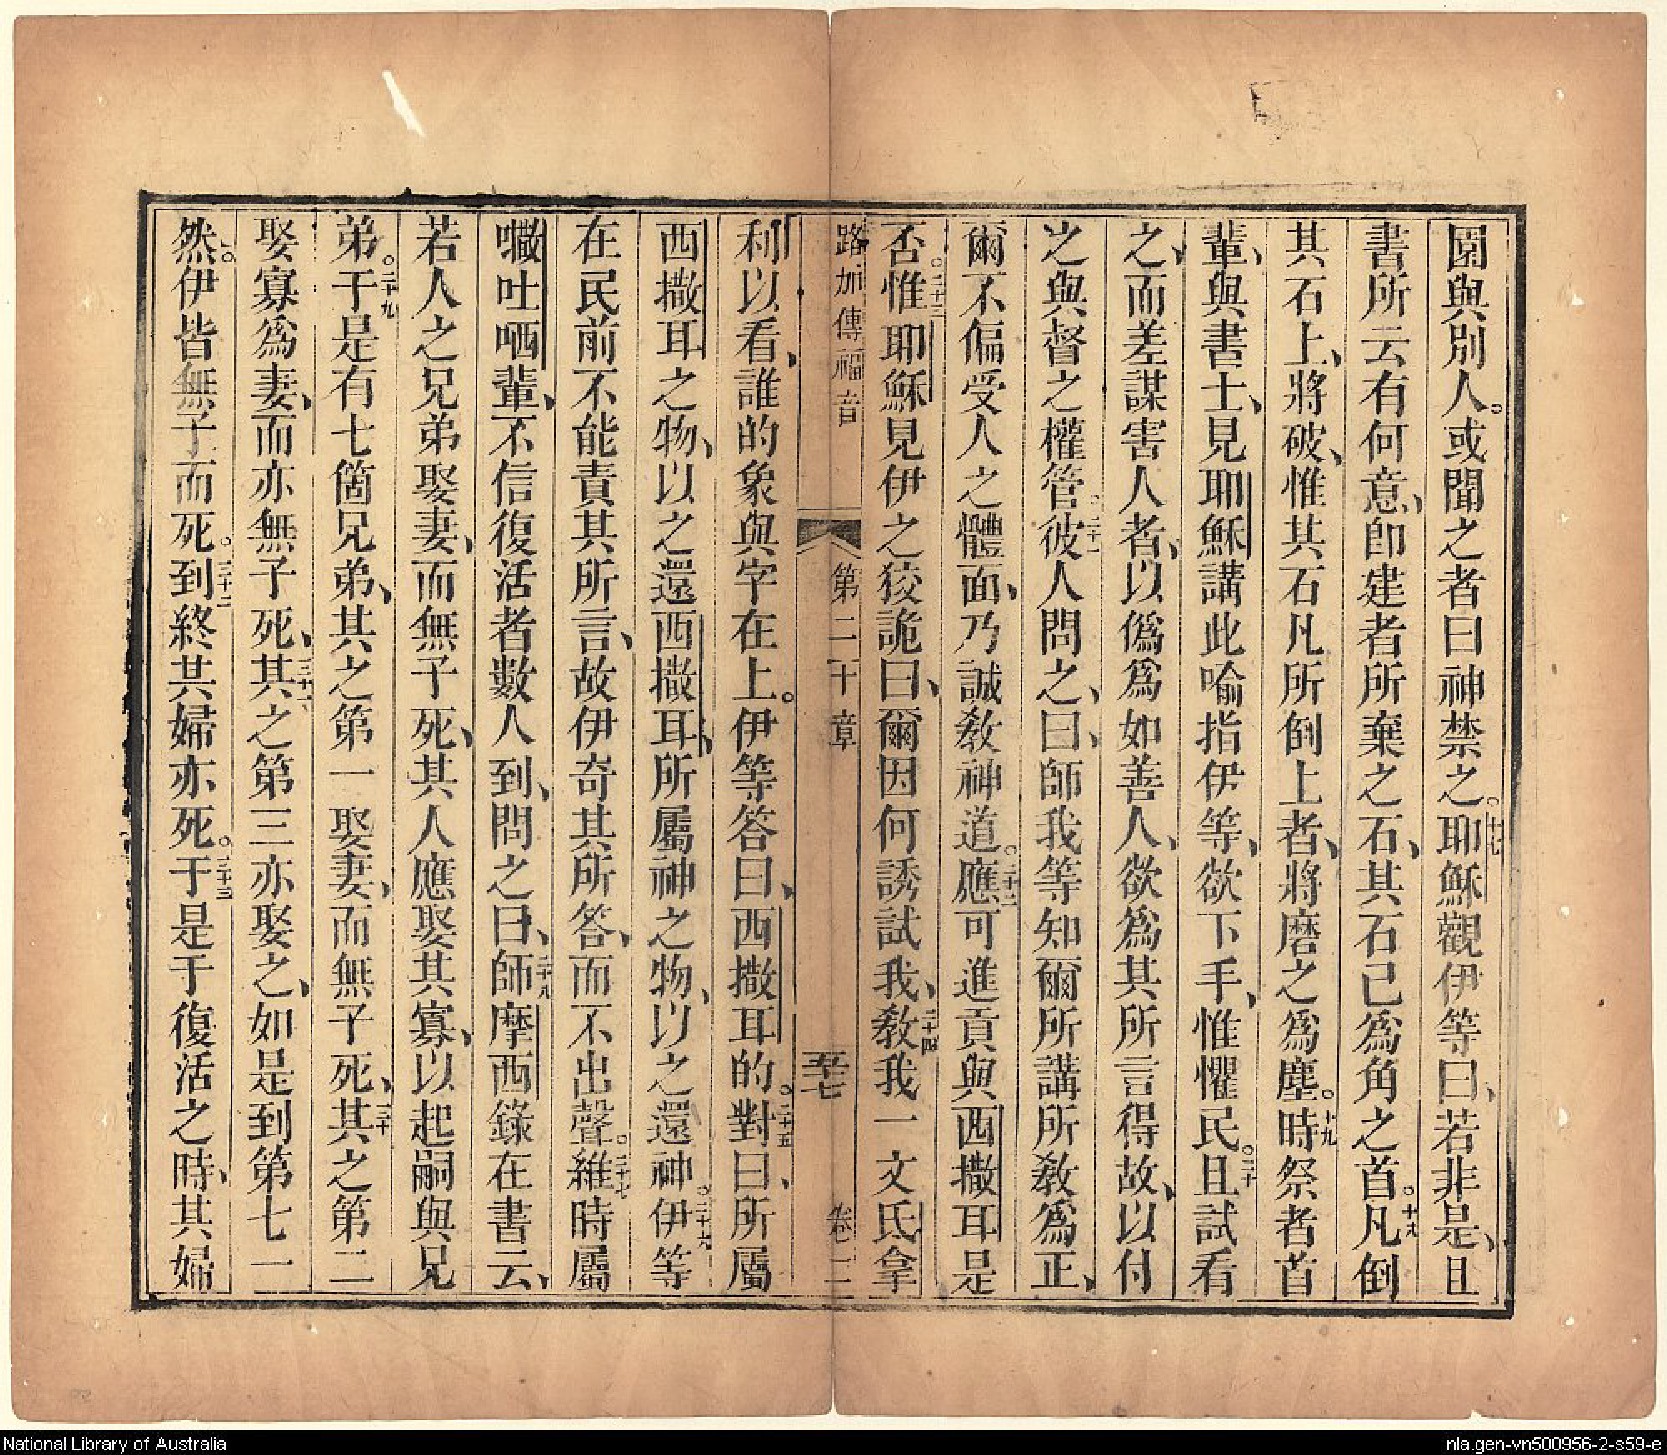 園與別人。或聞之者曰神禁之。十七耶穌觀伊等曰、若非是、且
書所云有何意、卽建者所棄之石、其石已爲角之首。十八凡倒
其石上、將破、惟其石凡所倒上者、將磨之爲塵。十九時祭者首
輩、與書士、見耶穌講此喻指伊等、欲下手、惟懼民。二十且試看
之、而差謀害人者、以僞爲如善人、欲爲其所言得故、以付
之與督之權管。二十一彼人問之、曰、師我等知爾所講所敎爲正、
爾不偏受人之體面、乃誠敎神道。二十二應可進貢與西撒耳是
否。二十三惟耶穌見伊之狡詭曰、爾因何誘試我、二十四敎我一文氐拿
路加傳福音 第二十章 五七 卷三
利以看、誰的象與字在上。伊等答曰、西撒耳的。二十五對曰、所屬
西撒耳之物、以之還西撒耳、所屬神之物、以之還神。二十六伊等
在民前不能責其所言、故伊奇其所答、而不出聲。二十七維時屬
𡂡吐哂輩、不信復活者數人到、問之曰、二十八師摩西錄在書云、
若人之兄弟娶妻、而無子死、其人應娶其寡、以起嗣與兄
弟。二十九于是有七箇兄弟、其之第一娶妻、而無子死、三十其之第二
娶寡爲妻、而亦無子死、三十一其之第三亦娶之、如是到第七一
然。伊皆無子而死。三十二到終其婦亦死。三十三于是于復活之時、其婦
National Library of Australia
nla.gen-vn500956-2-s59-e